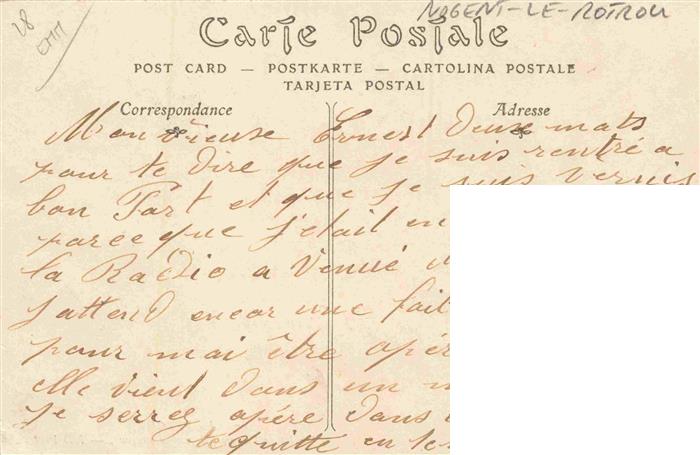 28
EMM
NOGENT-LE-ROTROU
Carte Postale
POST CARD — POSTKARTE — CARTOLINA POSTALE
TARJETA POSTAL
Correspondance
Adresse
Mon vieuse Ernest deux mats
pour te dire que je suis rentré a
bon Part et que je suis vernis
parce que j'etait en
la Radio a venué
j'attend encor une fait
pour mai être opér
elle vient dans un m
je serrez opére dans
te quitte en te